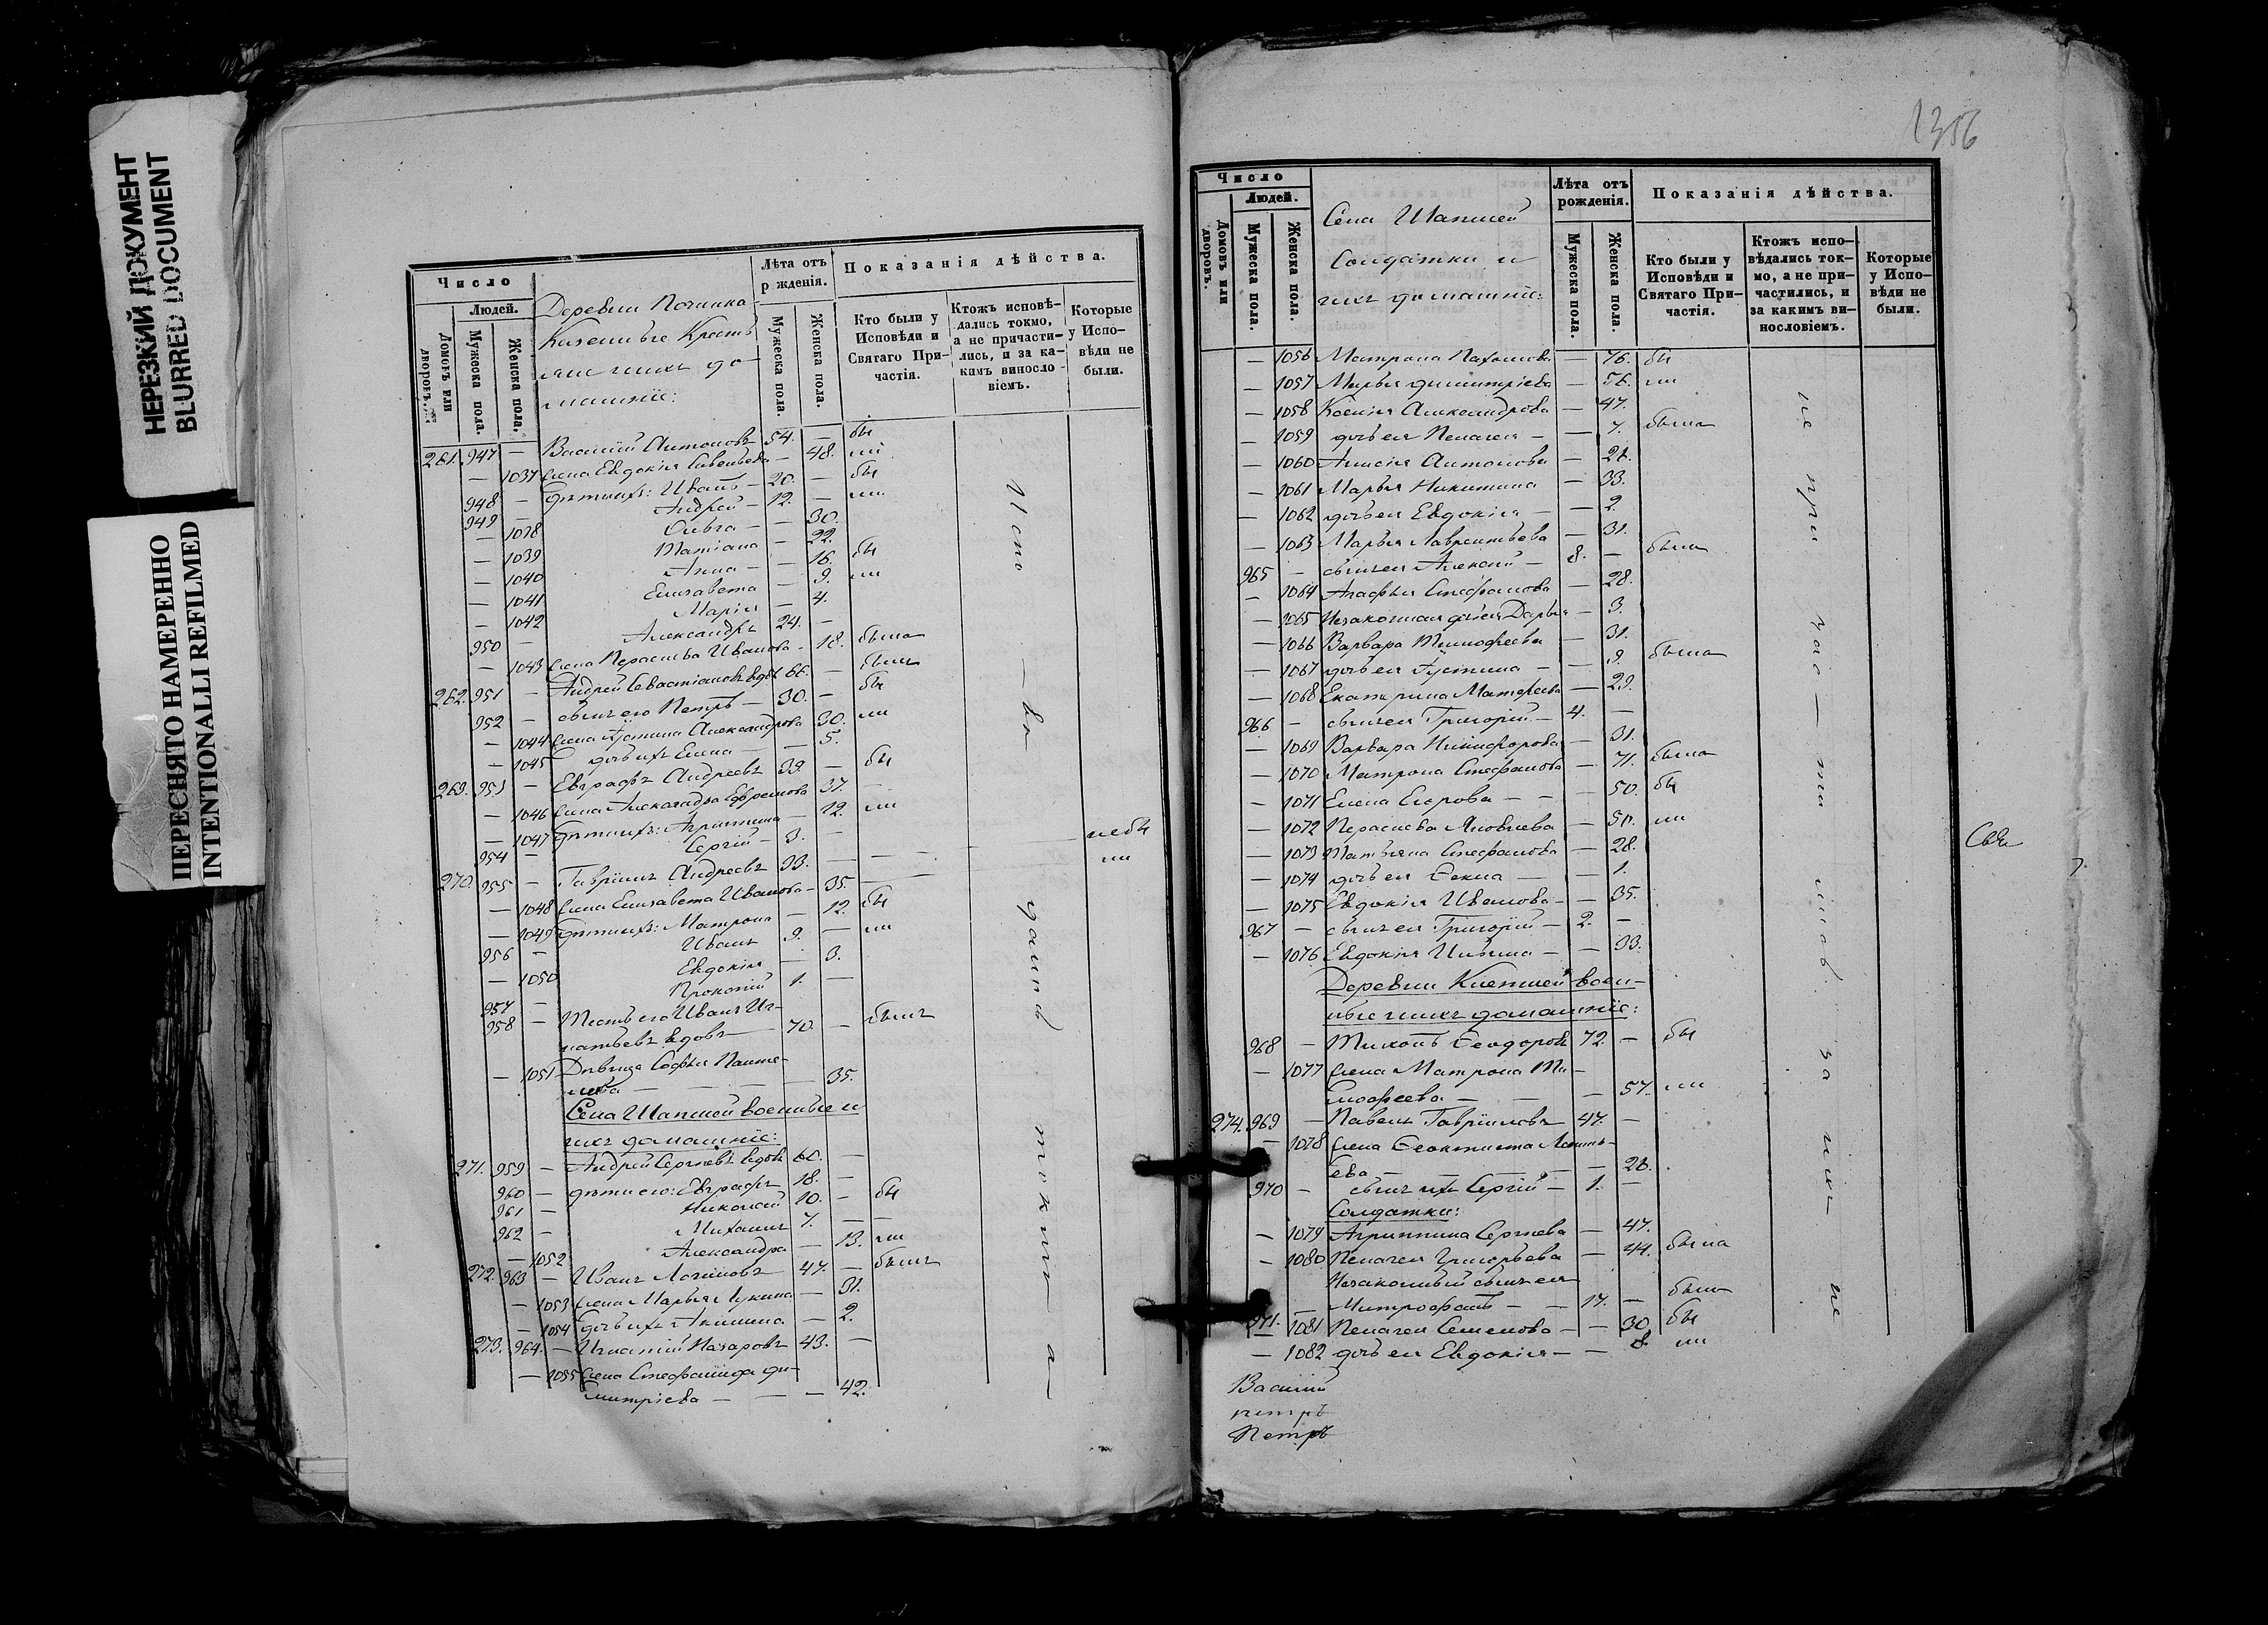 НЕРЕЗКИЙ ДОКУМЕНТ
BLURRED DOCUMENT
ПЕРЕСНЯТО НАМЕРЕННО
INTENTIONALLI REFILMED
Число
Людей.
Домовъ или дворовъ.
Мужеска пола.
Женска пола.
Деревни Починка
Казенные Кресть
яне и ихъ до-
машніе:
Лѣта отъ
р жденія.
Мужеска пола.
Женска пола.
Показанія дѣйства.
Кто были у
Исповѣди и
Святаго При-
частія.
Ктожъ исповѣ-
дались токмо,
а не причасти-
лись, и за ка-
кимъ виносло-
віемъ.
Которые
у Испо-
вѣди не
были.
261. 947 — Василій Антоновъ 54. — бы
— 1037 Жена Евдокія Савельева — 48. ли
948 — Дѣти ихъ: Иванъ — 20. — бы
949 — Андрей — 12. — ли
— 1038 Ольга — — 30.
— 1039 Татіана — 22.
— 1040 Анна — — 16. бы
— 1041 Елисавета — 9. ли
— 1042 Марія — 4.
950 — Александръ 24. —
— 1043 Жена Параскева Иванова — 18. была
262. 951 — Андрей Севастіановъ вдов 66. — былъ
952 — сынъ его Петръ — 30. — бы
— 1044 Жена Устина Александрова 30. ли
— 1045 дочь ихъ Елена — — 5.
269. 953 — Евграфъ Андреевъ 39. — бы
— 1046 Жена Александра Ефремова 37.
— 1047 Дѣти ихъ: Агриппина — 12. ли
954 — Сергій — 3. —
270. 955 — Гавріилъ Андреевъ 33. — небы
— 1048 Жена Елисавета Иванова — 35. ли
— 1049 Дѣти ихъ: Матрона — 12. бы
956 — Иванъ 9. — ли
— 1050 Евдокія — 3.
957 — Прокопій 1. —
958 — Тесть его Иванъ Иг-
натьевъ вдовъ 70. — былъ
— 1051 Дѣвица Софья Панте-
леева — 35.
Села Шапшей военные и
ихъ домашніе:
271. 959 — Андрей Сергѣевъ вдовъ 60. —
960 — дѣти его: Евграфъ 18. —
961 — Николай 10. — бы
962 — Михаилъ 7. —
— 1052 Александра — 13. ли
272. 963 — Иванъ Логиновъ 47. — былъ
— 1053 Жена Марья Лукина — 31.
— 1054 дочь ихъ Акилина — 2.
273. 964. — Игнатій Назаровъ 43. —
— 1055 Жена Стефанида Ди-
митріева — — — 42.
1356
Число
Людей.
Домовъ или дворовъ.
Мужеска пола.
Женска пола.
Села Шапшей
Солдатки и
ихъ домашніе:
Лѣта отъ
рожденія.
Мужеска пола.
Женска пола.
Показанія дѣйства.
Кто были у
Исповѣди и
Святаго При-
частія.
Ктожъ испо-
вѣдались ток-
мо, а не при-
частились, и
за какимъ ви-
нословіемъ.
Которые
у Испо-
вѣди не
были.
— 1056 Матрона Пахомова — 76. бы
— 1057 Марья Димитріева — 56. ли
— 1058 Ксенія Александрова — 47.
— 1059 дочь ея Пелагея — — 7. была
— 1060 Анисія Антонова — 26.
— 1061 Марья Никитина — 33.
— 1062 дочь ея Евдокія — — 2.
— 1063 Марья Лаврентьева — 31.
965 — сынъ ея Алексій — 8. — былъ
— 1064 Агафья Стефанова — 28.
— 1065 Незаконная дочь ея Дарья — 3.
— 1066 Варвара Тимофеева — 31.
— 1067 дочь ея Устина — — 9. была
— 1068 Екатерина Матфеева — 29.
966 — сынъ ея Григорій — 4. —
— 1069 Варвара Никифорова — 31.
— 1070 Матрона Стефанова — 71. была
— 1071 Елена Егорова — — 50. бы
— 1072 Параскева Яковлева — 50. ли
— 1073 Татьяна Стефанова — 28.
— 1074 дочь ея Ѳекла — — 1.
— 1075 Евдокія Иванова — — 35.
967 — сынъ ея Григорій — 2. —
— 1076 Евдокія Ильина — — 33.
воен-
ные и ихъ домашніе:
968 — Тихонъ Ѳеодоровъ 72. — бы
— 1077 Жена Матрона Ти-
мофеева — — 57. ли
274. 969 — Павелъ Гавріиловъ 47. —
— 1078 Жена Ѳеоктиста
— — 26.
970 — сынъ ихъ Сергій — 1. —
Солдатки:
— 1079 Агриппина Сергѣева — 47.
— 1080 Пелагея Григорьева — 44. была
Незаконный сынъ ея
971. — Митрофанъ — — 17. — былъ
— 1081 Пелагея Семенова — — 30. бы
— 1082 дочь ея Евдокія — — 8. ли
Василій
петръ
Петръ